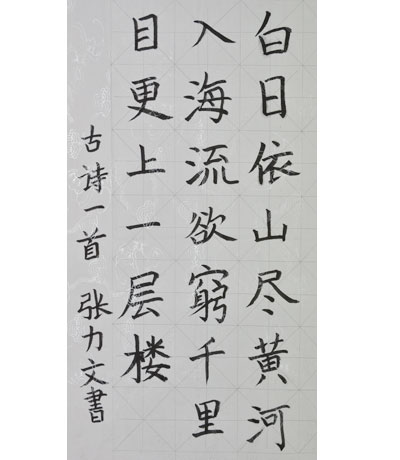 白日依山尽黄河
入海流欲窮千里
目更上一层楼
古诗一首 张力文書